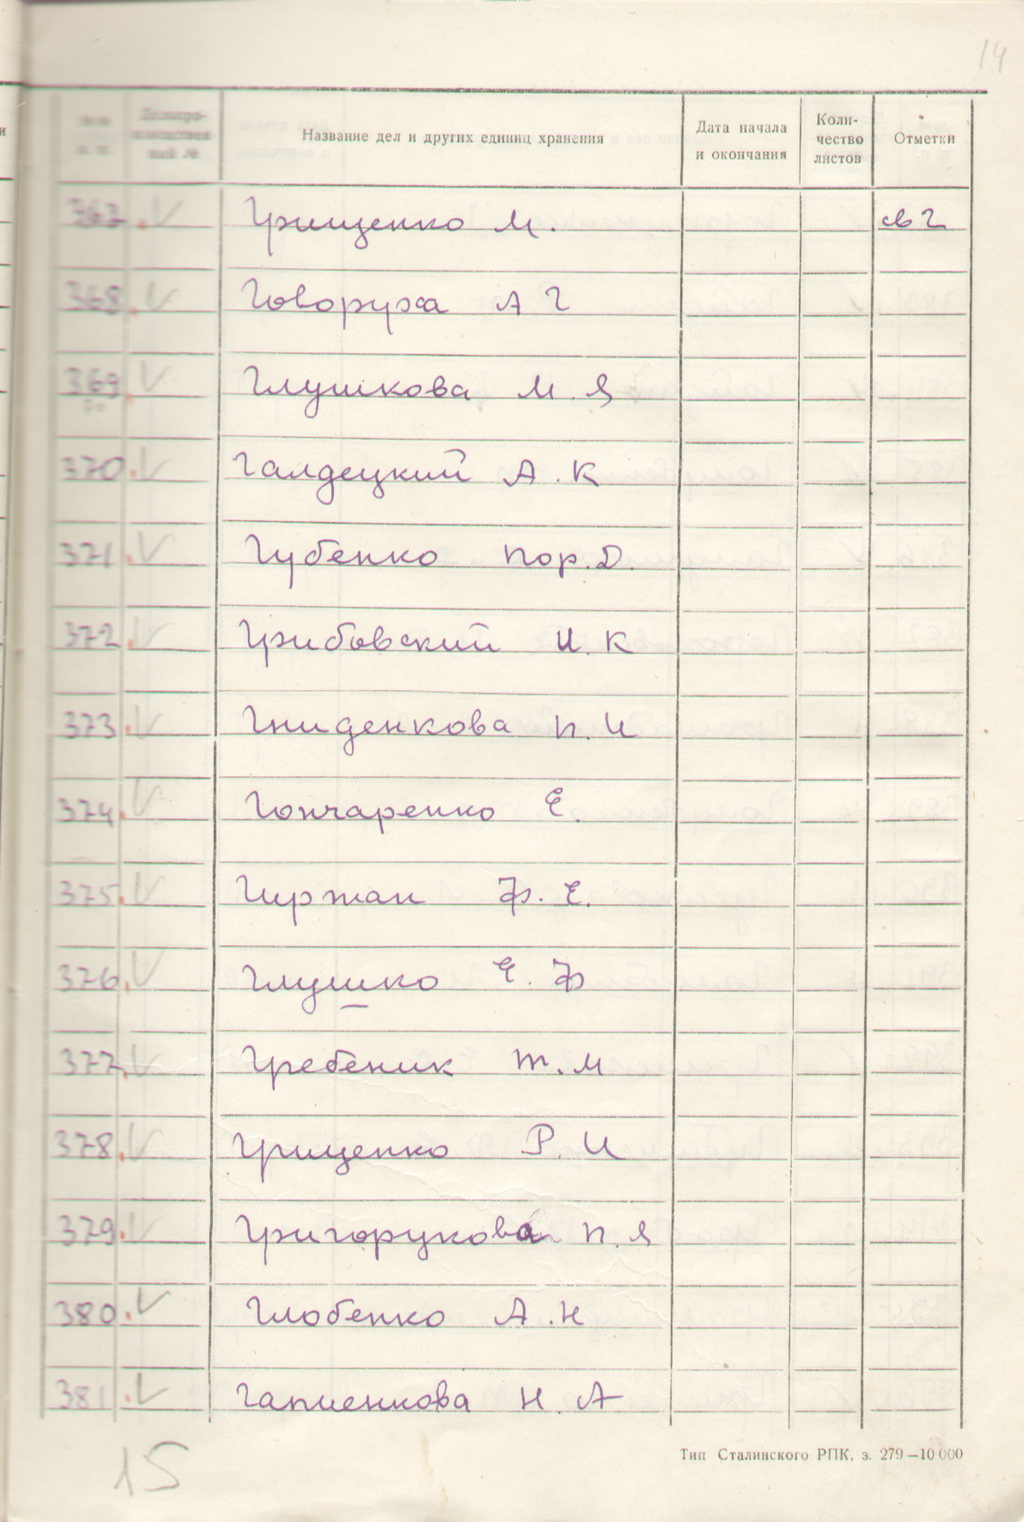 14
Название дел и других единиц хранения
Дата начала и окончания
Коли-
чество
листов
Отметки
367 V Грищенко М. св 2
368 V Говоруха А Г
369 V Глушкова М. Я
370 V Галдецкий А. К
371 V Губенко Пор. Д.
372 V Грибовский И. К
373 V Гниденкова П. И
374 V Гончаренко Е.
375 V Гиржан Ф. Е.
376 V Глушко Е. Ф
377 V Гребеник Т. М
378 V Грищенко Р. И
379 V Григорукова П. Я
380 V Глобенко А. Н
381 V Гапиенкова Н А
15
Тип Сталинского РПК, з. 279—10 000